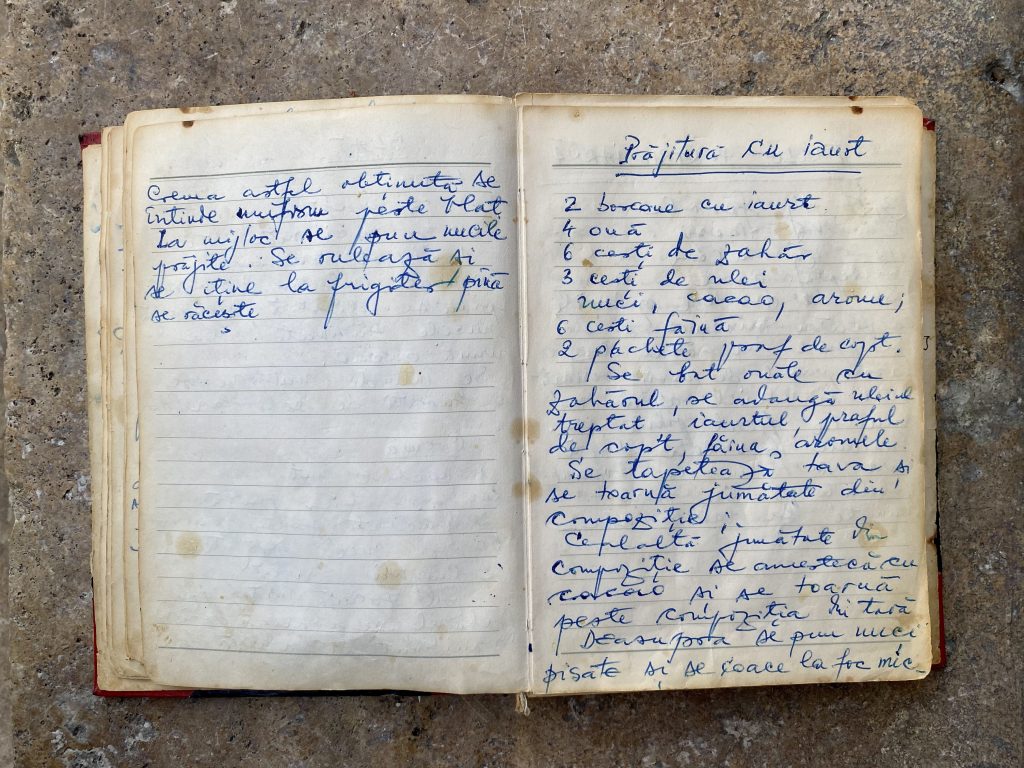 Crema astfel obtinută se
întinde uniform peste blat
La mijloc se pun nucile
prăjite. Se rulează și
se ține la frigider pînă
se răcește
Prăjitură cu iaurt
2 borcane cu iaurt.
4 ouă
6 cești de zahăr
3 cești de ulei
nuci, cacao, arome;
6 cesti făină
2 pachete praf de copt.
Se bat ouăle cu
zahărul, se adaugă uleiul
treptat iaurtul, praful
de copt, făina, aromele.
Se tapetează tava și
se toarnă jumătate din
compoziție;
Cealaltă jumătate din
compoziție se amestecă cu
cacao și se toarnă
peste compoziția din tavă
Deasupra se pun nuci
pisate și se coace la foc mic